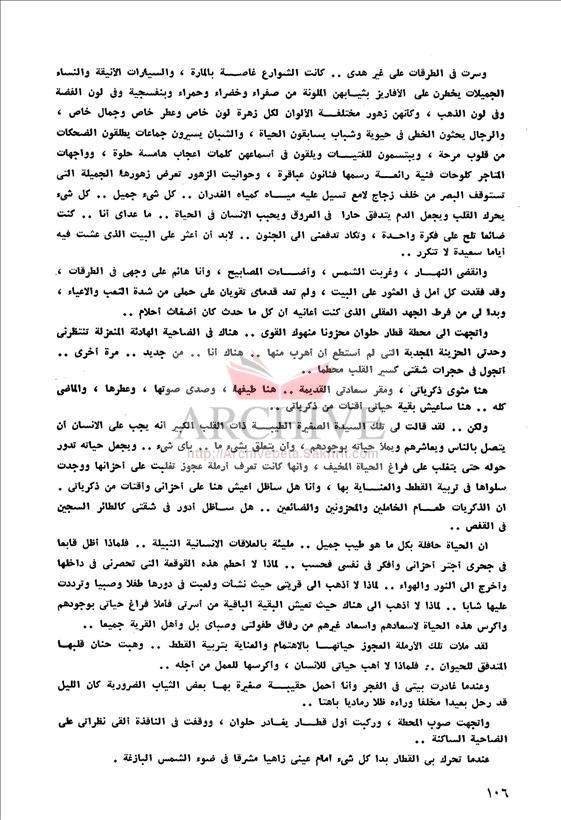 وسرت فى الطرقات على غير هدى .. كانت الشوارع غاصـــة بالمارة ، والسيارات الأنيقة والنساء
الجميلات يخطرن على الأفاريز بثيـــابهن الملونة من صفراء وخضراء وحمراء وبنفسجية وفى لون الفضة
وفى لون الذهب ، وكأنهن زهور مختلفــة الألوان لكل زهرة لون خاص وعطر خاص وجمال خاص ،
والرجال يحثون الخطى فى حيوية وشباب يسابقون الحياة ، والشبان يسيرون جماعات يطلقون الضحكات
من قلوب مرحة ، ويبتسمون للفتيــات ويلقون فى أسماعهن كلمات اعجاب هامسة حلوة ، وواجهات
المتاجر كلوحات فنية رائعـــة رسمها فنانون عباقرة ، وحوانيت الزهور تعرض زهورها الجميلة التى
تستوقف البصر من خلف زجاج لامع تسيل عليه ميـــاه كمياه الغدران .. كل شىء جميل .. كل شىء
يحرك القلب ويجعل الدم يتدفق حارا فى العروق ويحبب الانسان فى الحياة .. ما عداى أنا .. كنت
ضائعا تلح على فكرة واحـدة ، وتكاد تدفعنى الى الجنون .. لابد أن أعثر على البيت الذى عشت فيه
أياما سعيدة لا تتكرر ..
وانقضى النهـــار ، وغربت الشمس ، وأضـــاءت المصابيح ، وأنا هائم على وجهى فى الطرقات ،
وقد فقدت كل أمل فى العثور على البيت ، ولم تعد قدماى تقويان على حملى من شدة التعب والاعياء ،
وبدا لى من فرط الجهد العقلى الذى كنت أعانيه أن كل ما حدث كان أضغاث أحلام ..
واتجهت الى محطة قطار حلوان محزونا منهوك القوى .. هناك فى الضاحية الهادئة المنعزلة تنتظرنى
وحدتى الحزينة المجدبة التى لم أستطع أن أهرب منها .. هناك أنا .. من جديد .. مرة أخرى ..
أتجول فى حجرات شقتى كسير القلب محطما ..
هنا مثوى ذكرياتى ، ومقر سعادتى القديمة .. هنا طيفها ، وصدى صوتها ، وعطرها ، والماضى
كله .. هنا سأعيش بقية حياتى أقتات من ذكرياتى ..
ولكن .. لقد قالت لى تلك السيدة الصغيرة الطيبــة ذات القلب الكبير أنه يجب على الانسان أن
يتصل بالناس ويعاشرهم ويملأ حياته بوجودهم ، وأن يتعلق بشىء ما .. بأى شىء .. ويجعل حياته تدور
حوله حتى يتغلب على فراغ الحياة المخيف ، وانها كانت تعرف أرملة عجوز تغلبت على أحزانها ووجدت
سلواها فى تربية القطط والعنــاية بها ، وأنا هل سأظل أعيش هنا على أحزانى وأقتات من ذكرياتى .
ان الذكريات طعــام الخاملين والمحزونين والضائعين .. هل ســأظل أدور فى شقتى كالطائر السجين
فى القفص ..
ان الحياة حافلة بكل ما هو طيب جميل .. مليئة بالعلاقات الانسانية النبيلة .. فلماذا أظل قابعا
فى جحرى أجتر أحزانى وأفكر فى نفسى فحسب .. لماذا لا أحطم هذه القوقعة التى تحصرنى فى داخلها
وأخرج الى النور والهواء .. لماذا لا أذهب الى قريتى حيث نشأت ولعبت فى دورها طفلا وصبيا وترددت
عليها شابا .. لماذا لا أذهب الى هناك حيث تعيش البقية الباقية من أسرتى فأملأ فراغ حياتى بوجودهم
وأكرس هذه الحياة لاسعادهم واسعاد غيرهم من رفاق طفولتى وصباى بل وأهل القرية جميعا ..
لقد ملأت تلك الأرملة العجوز حياتهــا بالاهتمام والعناية بتربية القطط .. وهبت حنان قلبهـا
المتدفق للحيوان .. فلماذا لا أهب حياتى للانسان ، وأكرسها للعمل من أجله ..
وعندما غادرت بيتى فى الفجر وأنا أحمل حقيبــة صغيرة بهــا بعض الثياب الضرورية كان الليل
قد رحل بعيدا مخلفا وراءه ظلا رماديا باهتا ..
واتجهت صوب المحطة ، وركبت أول قطــار يغــادر حلوان ، ووقفت فى النافذة ألقى نظراتى على
الضاحية الساكنة ..
عندما تحرك بى القطار بدا كل شىء أمام عينى زاهيا مشرقا فى ضوء الشمس البازغة .
ARCHIVE
http://Archivebeta.Sakhrit.com
١٠٦